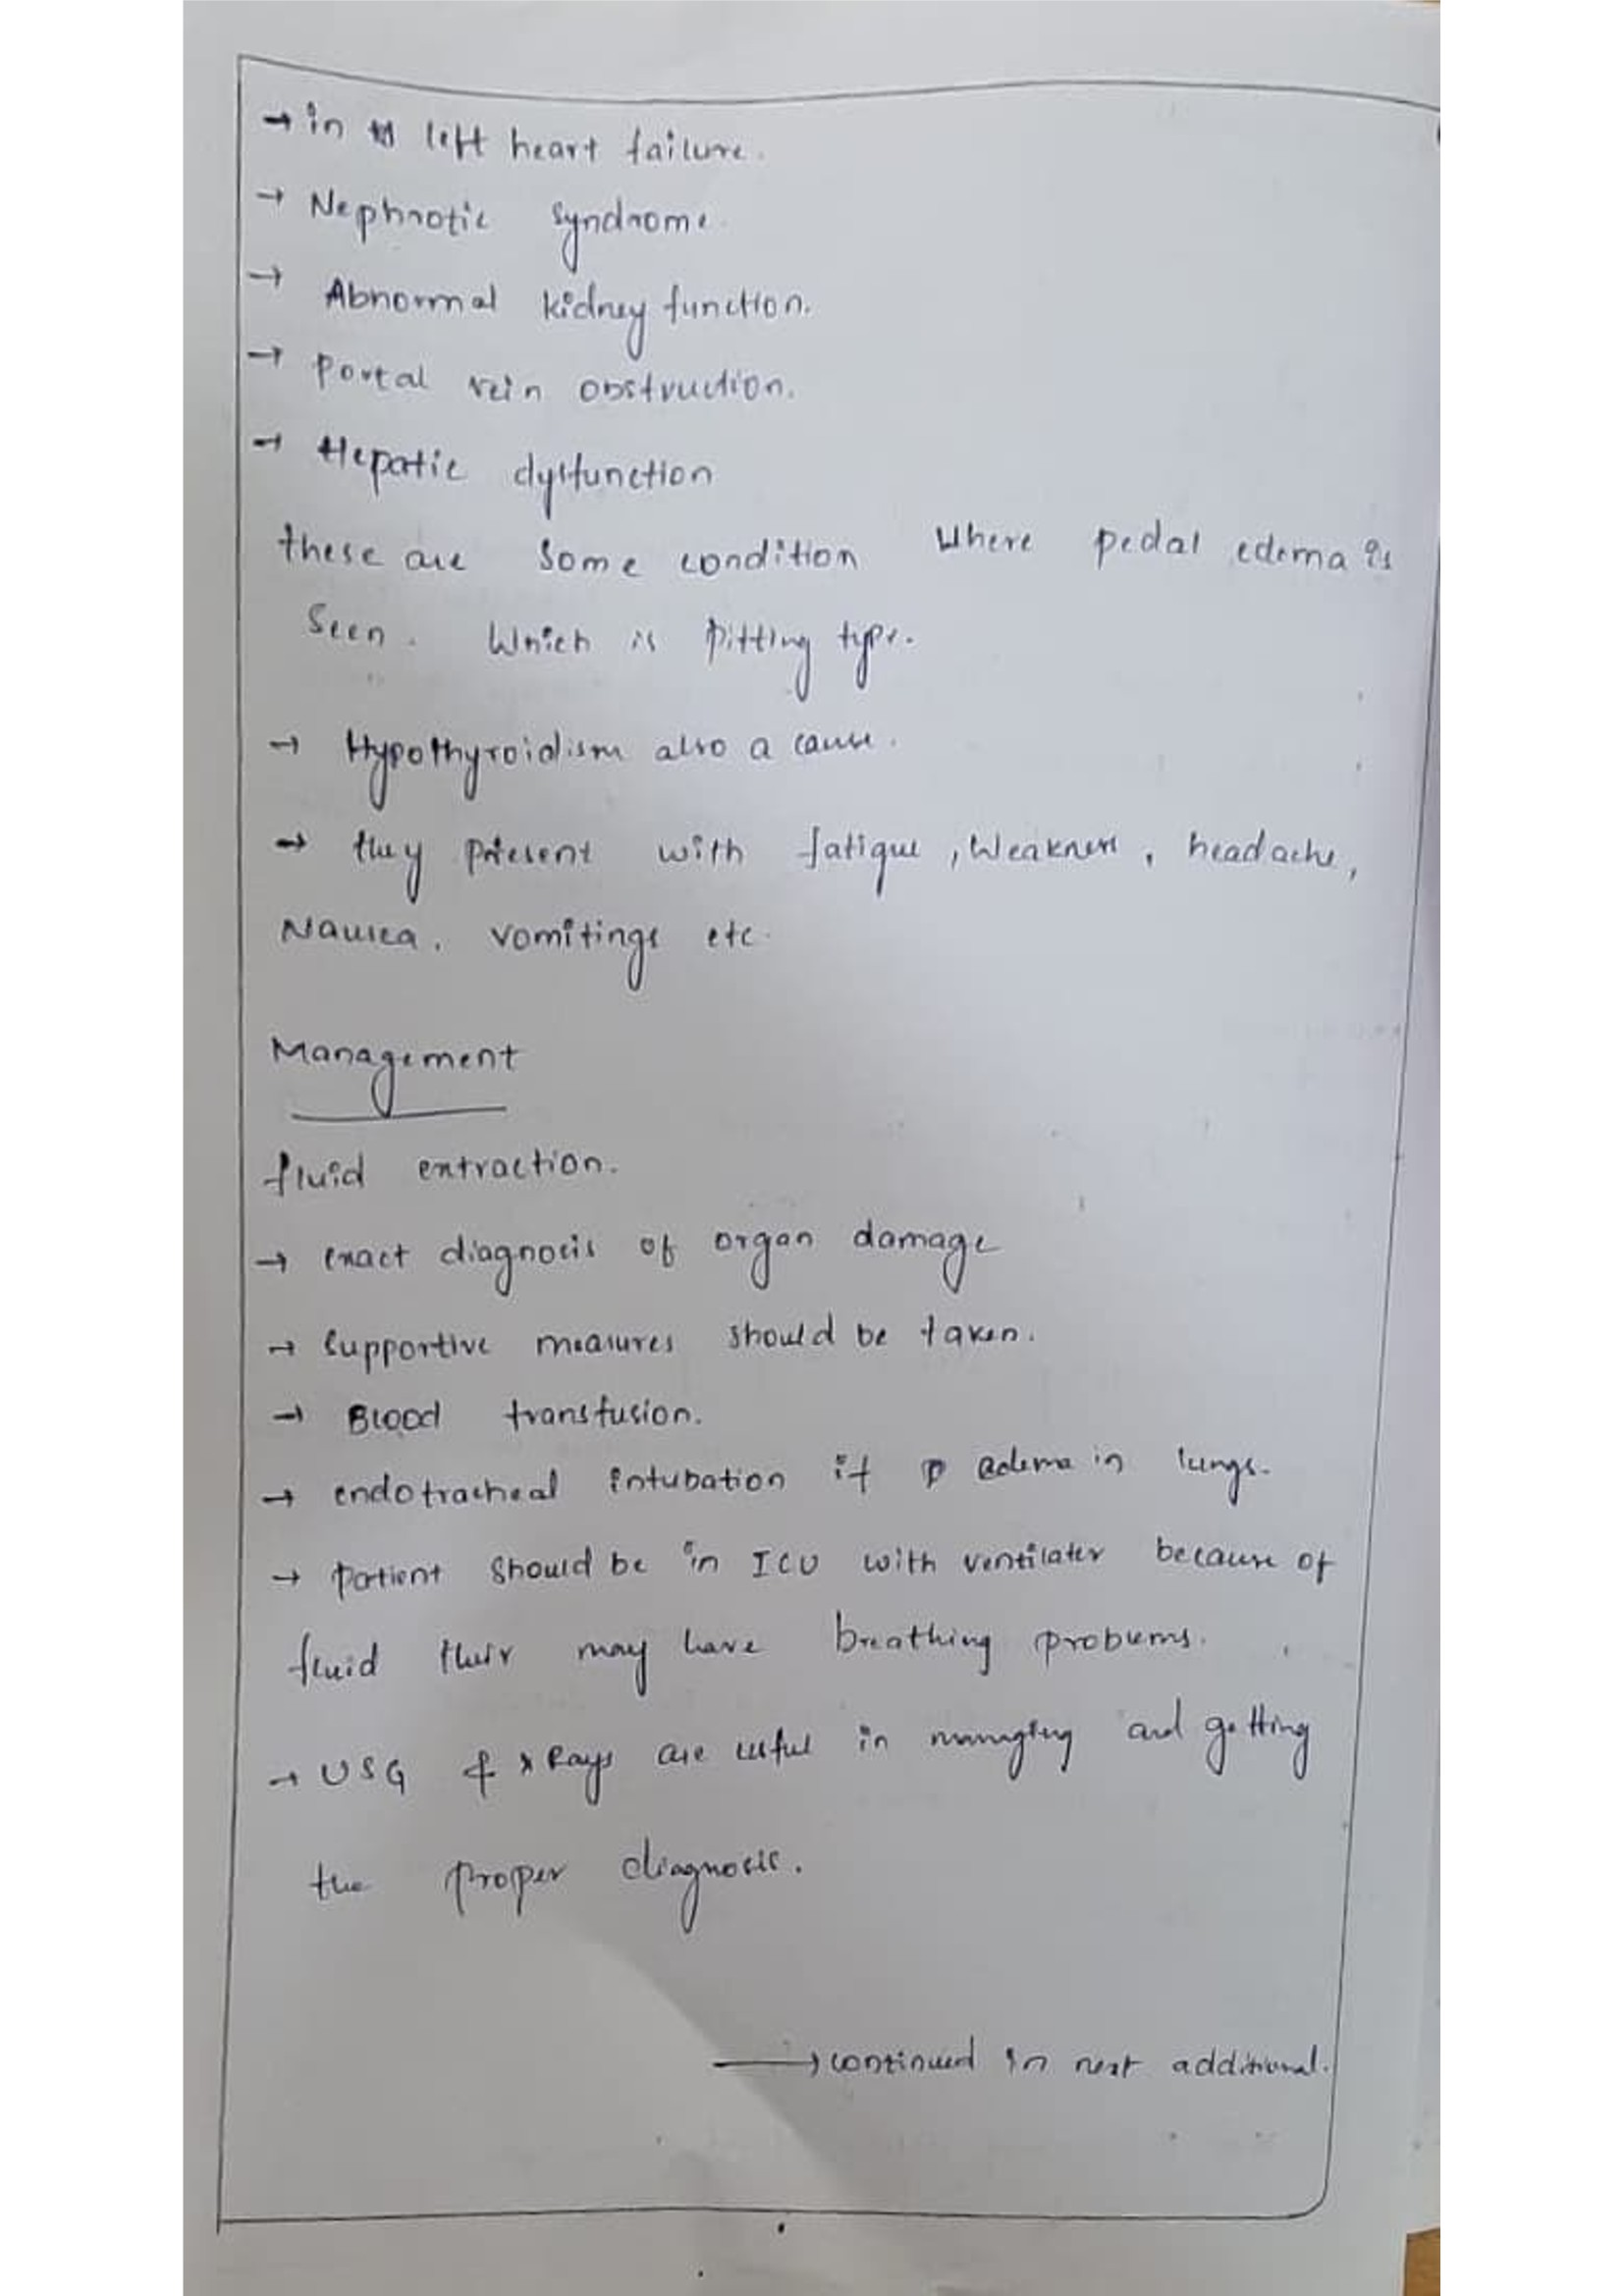 → in left heart failure.
→ Nephrotic syndrome.
→ Abnormal kidney function.
→ portal vein obstruction.
→ Hepatic dysfunction
these are some condition where pedal edema is
seen. Which is pitting type.
→ Hypothyroidism also a cause.
→ they present with fatigue, Weakness, headache,
Nausea, vomitings etc.
Management
fluid extraction.
→ exact diagnosis of organ damage
→ supportive measures should be taken.
→ Blood transfusion.
→ endotracheal intubation if edema in lungs.
→ patient should be in ICU with ventilater because of
fluid their may have breathing problems.
→ USG & x Rays are useful in managing and getting
the proper diagnosis.
→ continued in next additional.